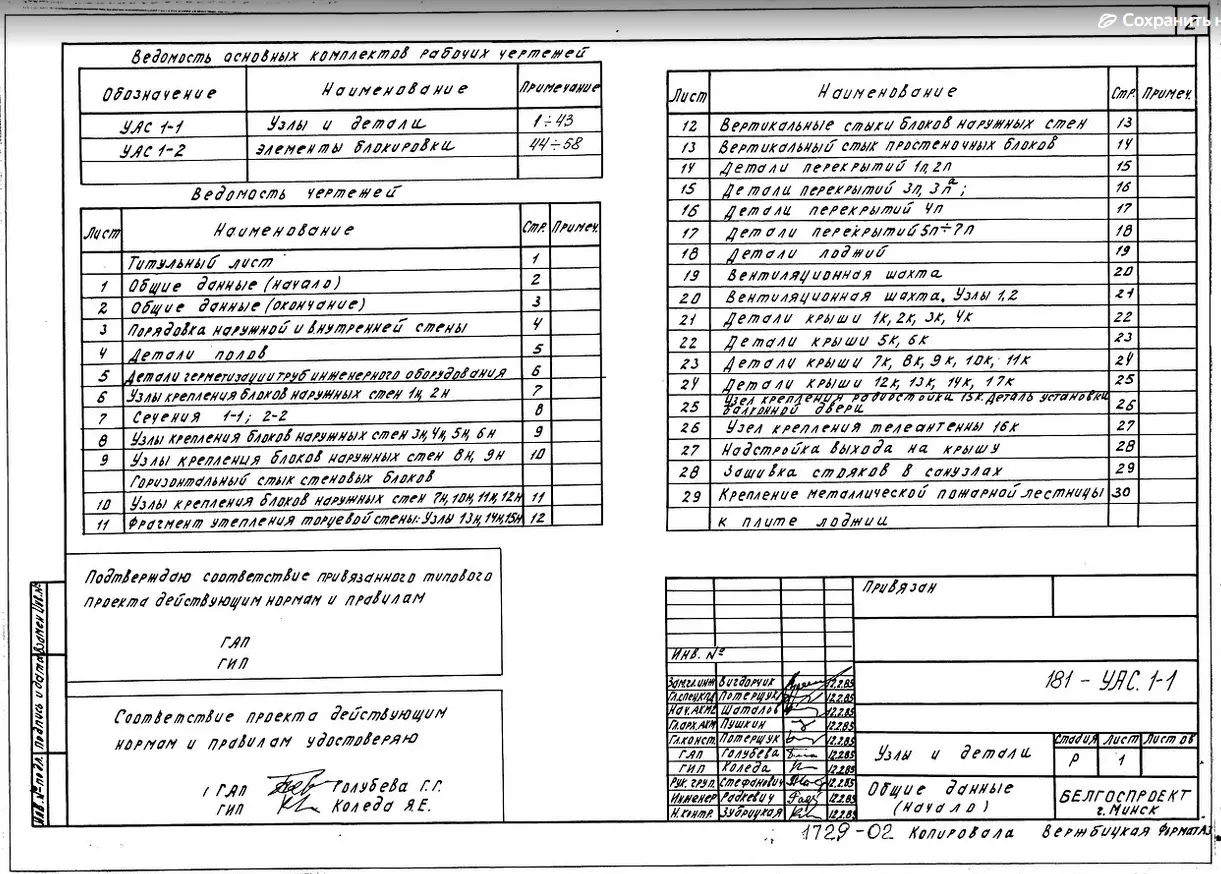 Сохранить н
2
Ведомость основных комплектов рабочих чертежей
Обозначение Наименование Примечание
УАС 1-1 Узлы и детали 1÷43
УАС 1-2 элементы блокировки 44÷58
Ведомость чертежей
Лист Наименование Стр. Примеч.
Титульный лист 1
1 Общие данные (начало) 2
2 Общие данные (окончание) 3
3 Порядовка наружной и внутренней стены 4
4 Детали полов 5
5 Детали герметизации труб инженерного оборудования 6
6 Узлы крепления блоков наружных стен 1н, 2н 7
7 Сечения 1-1; 2-2 8
8 Узлы крепления блоков наружных стен 3н, 4н, 5н, 6н 9
9 Узлы крепления блоков наружных стен 8н, 9н 10
Горизонтальный стык стеновых блоков
10 Узлы крепления блоков наружных стен 7н, 10н, 11н, 12н 11
11 Фрагмент утепления торцевой стены: Узлы 13н, 14н, 15н 12
Лист Наименование Стр. Примеч.
12 Вертикальные стыки блоков наружных стен 13
13 Вертикальный стык простеночных блоков 14
14 Детали перекрытий 1п, 2п 15
15 Детали перекрытий 3п, 3пª; 16
16 Детали перекрытий 4п 17
17 Детали перекрытий 5п÷7п 18
18 Детали лоджий 19
19 Вентиляционная шахта 20
20 Вентиляционная шахта. Узлы 1,2 21
21 Детали крыши 1к, 2к, 3к, 4к 22
22 Детали крыши 5к, 6к 23
23 Детали крыши 7к, 8к, 9к, 10к, 11к 24
24 Детали крыши 12к, 13к, 14к, 17к 25
25 Узел крепления радиостойки 15к. Деталь установки балконной двери 26
26 Узел крепления телеантенны 16к 27
27 Надстройка выхода на крышу 28
28 Зашивка стояков в санузлах 29
29 Крепление металлической пожарной лестницы 30
к плите лоджии
Подтверждаю соответствие привязанного типового
проекта действующим нормам и правилам
ГАП
ГИП
Соответствие проекта действующим
нормам и правилам удостоверяю
ГАП Голубева Г.Г.
ГИП Коледа Я.Е.
Инв. № подл. Подпись и дата Взамен Инв. №
Привязан
Инв. №
Зам.гл.инж. Вигдорчик 12.2.85
Гл.спец.КПД Потерщук 12.2.85
Нач.АКМ2 Шаталов 12.2.85
Гл.арх.АКМ Пушкин 12.2.85
Гл.конст. Потерщук 12.2.85
ГАП Голубева 12.2.85
ГИП Коледа 12.2.85
Рук.груп. Стефанович 12.2.85
Инженер Радкевич 12.2.85
Н.контр. Зубрицкая 12.2.85
181 - УАС. 1-1
Узлы и детали
Стадия Лист Листов
Р 1
Общие данные
(начало)
БЕЛГОСПРОЕКТ
г. Минск
1729-02 Копировала Вержбицкая Формат А3